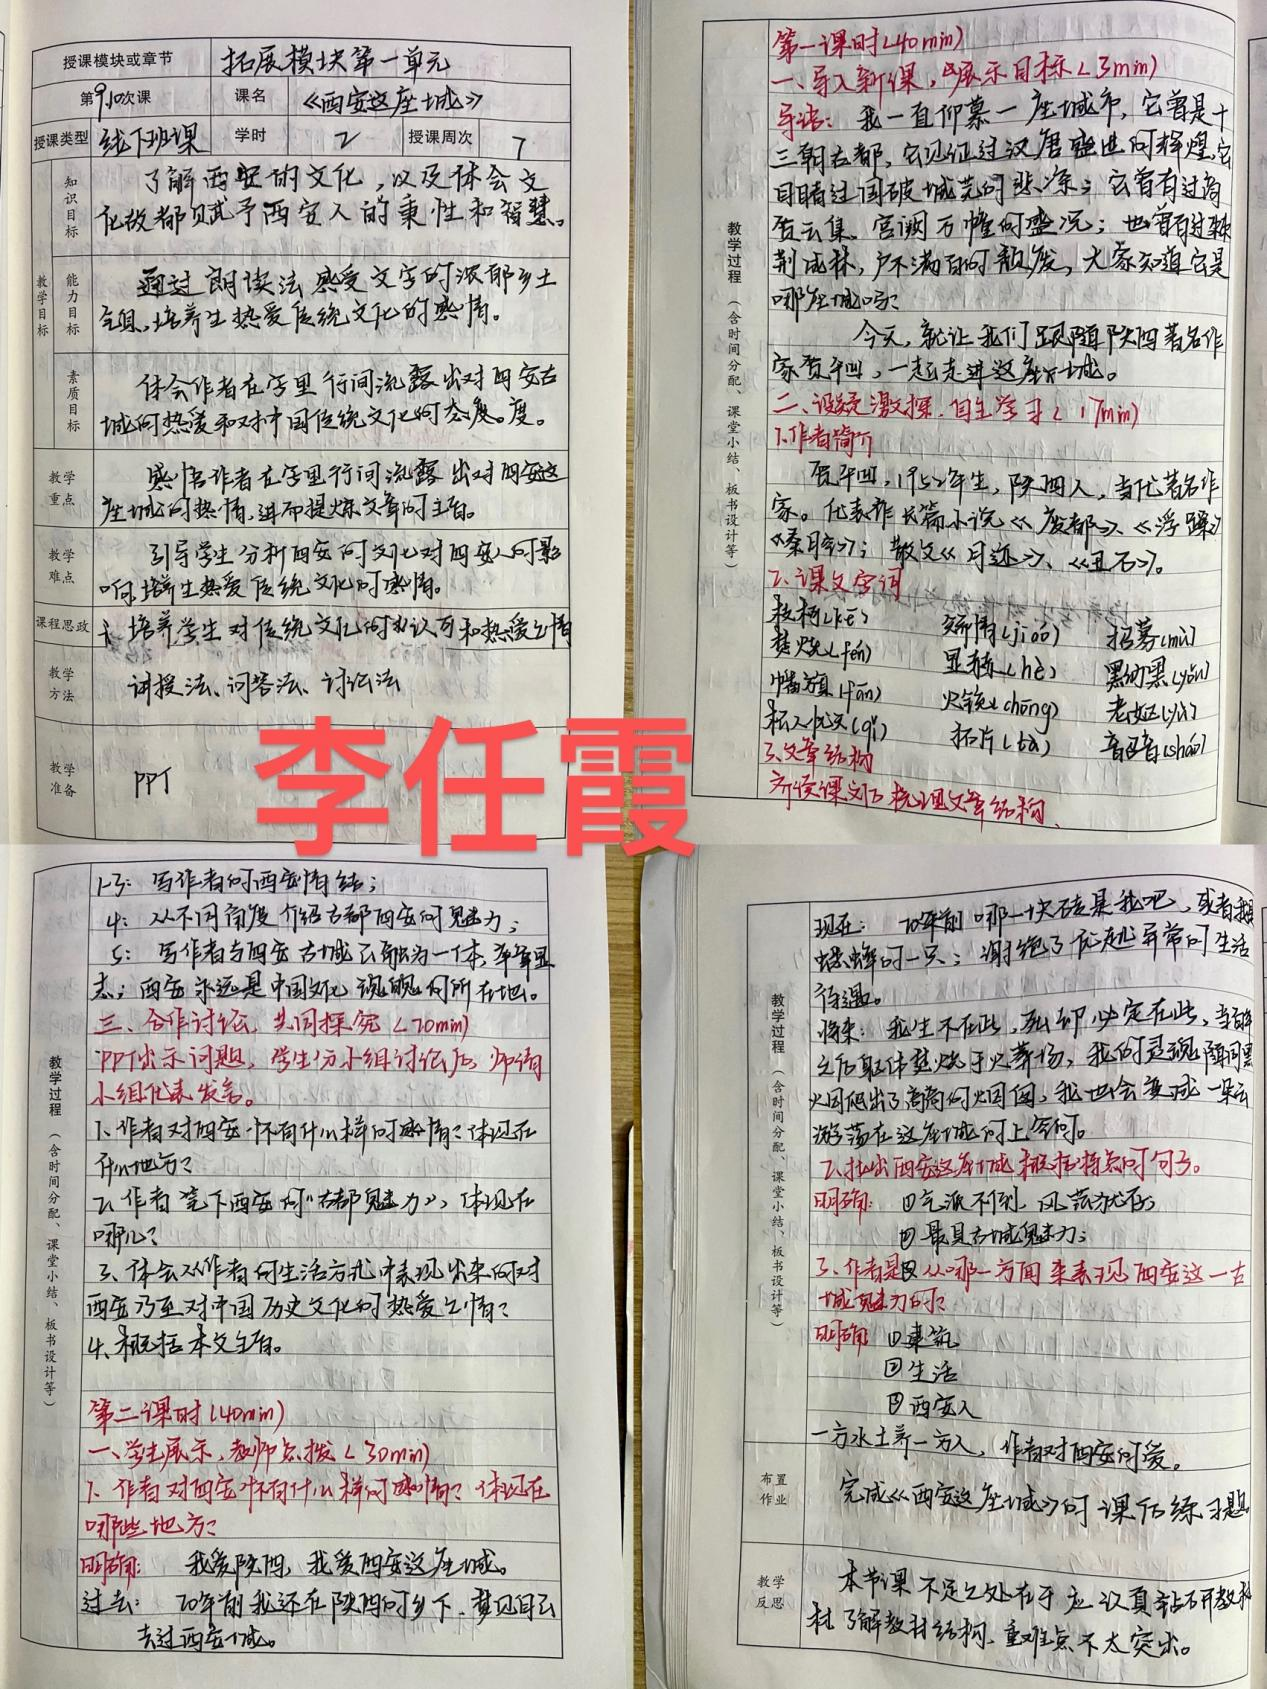 授课模块或章节 拓展模块第一单元
第9.10次课 课名 《西安这座城》
授课类型 线下班课 学时 2 授课周次 7
教学目标
知识目标 了解西安的文化，以及体会文
化故都赋予西安人的秉性和智慧。
能力目标 通过朗读法感受文字的浓郁乡土
气息，培养生热爱传统文化的感情。
素质目标 体会作者在字里行间流露出对西安古
城的热爱和对中国传统文化的态度。度。
教学重点 感悟作者在字里行间流露出对西安这
座城的热情，进而提炼文章的主旨。
教学难点 引导学生分析西安的文化对西安人的影
响，培养生热爱传统文化的感情。
课程思政 培养学生对传统文化的认可和热爱之情
教学方法 讲授法、问答法、讨论法
教学准备 PPT
李任霞
教学过程（含时间分配、课堂小结、板书设计等）
第一课时(40min)
一、导入新课，展示目标(3min)
导语：我一直仰慕一座城市，它曾是十
三朝古都，它见证过汉唐盛世的辉煌，它
目睹过国破城荒的悲凉；它曾有过商
贾云集、宫阙万幢的盛况；也曾有过荆棘
荆成林，户不满百的颓废，大家知道它是
哪座城吗？
今天，就让我们跟随陕西著名作
家贾平凹，一起走进这座城。
二、设疑激探，自主学习(17min)
1.作者简介
贾平凹，1952年生，陕西人，当代著名作
家。代表作长篇小说《废都》、《浮躁》
《秦腔》；散文《月迹》、《丑石》。
2、课文字词
枝柯(kē) 矫情(jiáo) 招募(mù)
焚烧(fén) 显赫(hè) 黑黝黝(yǒu)
幡旗(fān) 火铳(chòng) 老妪(yù)
杞人忧天(qǐ) 拓片(tà) 韶音(sháo)
3、文章结构
齐读课文后梳理文章结构。
教学过程（含时间分配、课堂小结、板书设计等）
1-3：写作者的西安情结；
4：从不同角度介绍古都西安的魅力；
5：写作者与西安古城已融为一体，卒章显
志；西安永远是中国文化魂魄的所在地。
三、合作讨论，共同探究(20min)
PPT出示问题，学生分小组讨论后，师请
小组代表发言。
1、作者对西安怀有什么样的感情？体现在
什么地方？
2、作者笔下西安的“古都魅力”，体现在
哪儿？
3、体会从作者的生活方式中表现出来的对
西安乃至对中国历史文化的热爱之情？
4、概括本文主旨。
第二课时(40min)
一、学生展示，教师点拨(30min)
1、作者对西安怀有什么样的感情？体现在
哪些地方？
明确：我爱陕西，我爱西安这座城。
过去：20年前我还在陕西的乡下，梦见自己
去过西安城。
教学过程（含时间分配、课堂小结、板书设计等）
现在：20年前哪一块砖是我吧，或者我是
蟋蟀的一只；谢绝了优越异常的生活
待遇。
将来：我生不在此，死却必定在此，当百年
之后躯体焚烧于火葬场，我的灵魂随同黑
火烟爬出了高高的烟囱，我也会变成一朵云
游荡在这座城的上空的。
2、找出西安这座城概括特点的句子。
明确：①气派不倒，风范犹存；
②最具古城魅力；
3、作者是从哪一方面来表现西安这一古
城魅力的？
明确①建筑
②生活
③西安人
一方水土养一方人，作者对西安的爱。
布置作业 完成《西安这座城》的课后练习题
教学反思 本节课不足之处在于应认真钻研教
材了解教材结构，重难点不太突出。